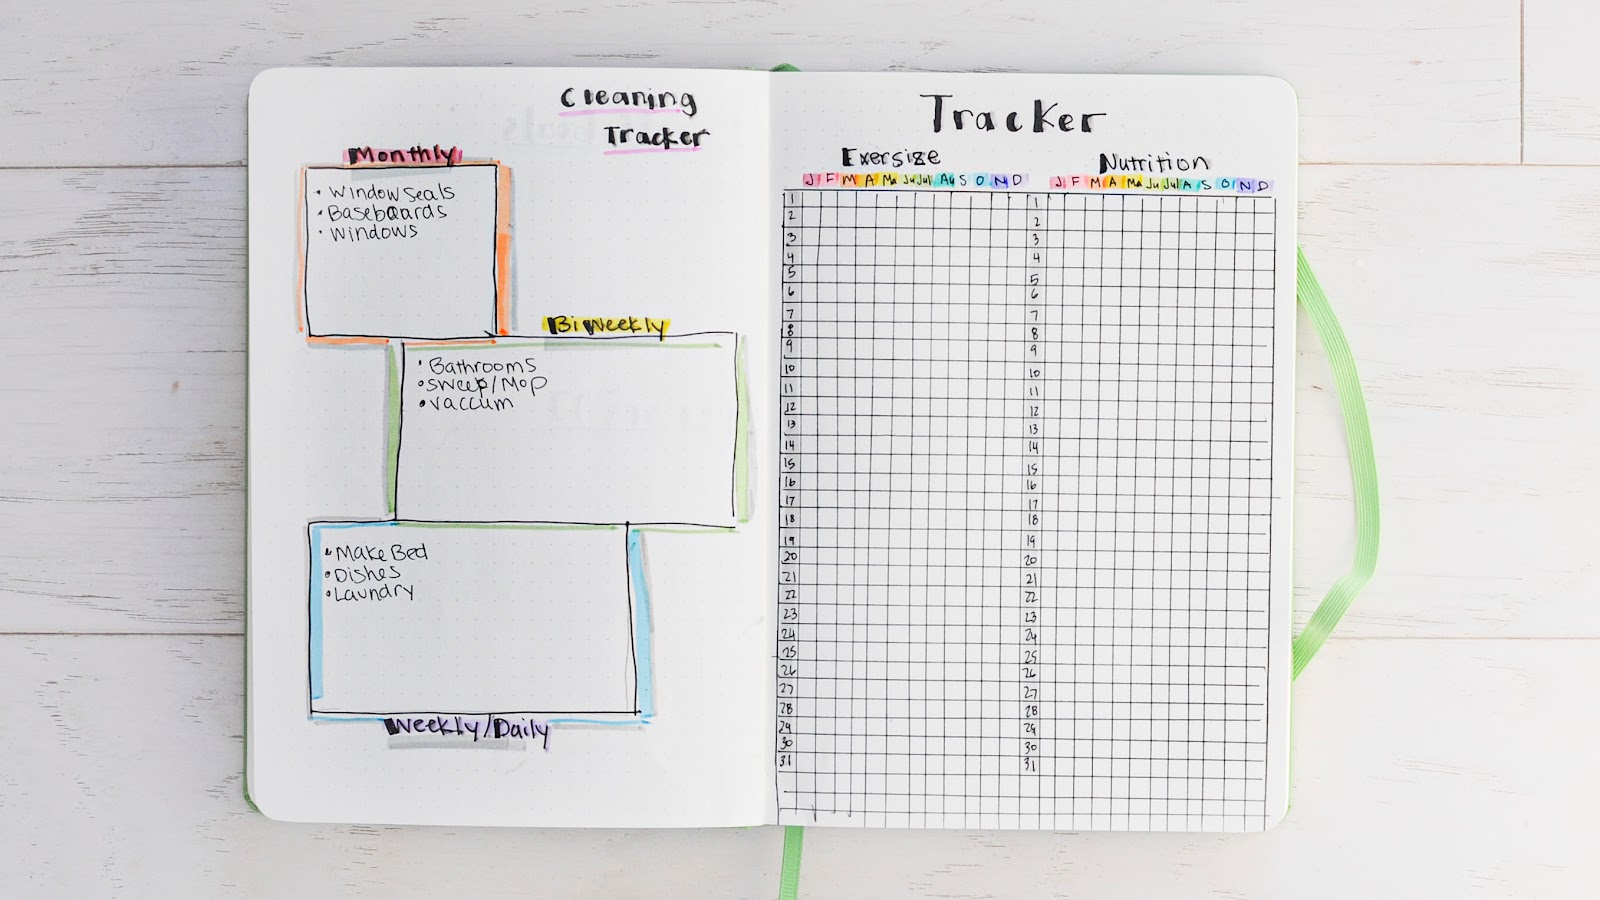 Cleaning
Tracker
Monthly
• Window Seals
• Baseboards
• Windows
BiWeekly
• Bathrooms
• Sweep/Mop
• Vaccum
• Make Bed
• Dishes
• Laundry
Weekly/Daily
Tracker
Exersize
J F M A Ma Ju Jul Au S O N D
1
2
3
4
5
6
7
8
9
10
11
12
13
14
15
16
17
18
19
20
21
22
23
24
25
26
27
28
29
30
31
Nutrition
J F M A Ma Ju Jul A S O N D
1
2
3
4
5
6
7
8
9
10
11
12
13
14
15
16
17
18
19
20
21
22
23
24
25
26
27
28
29
30
31